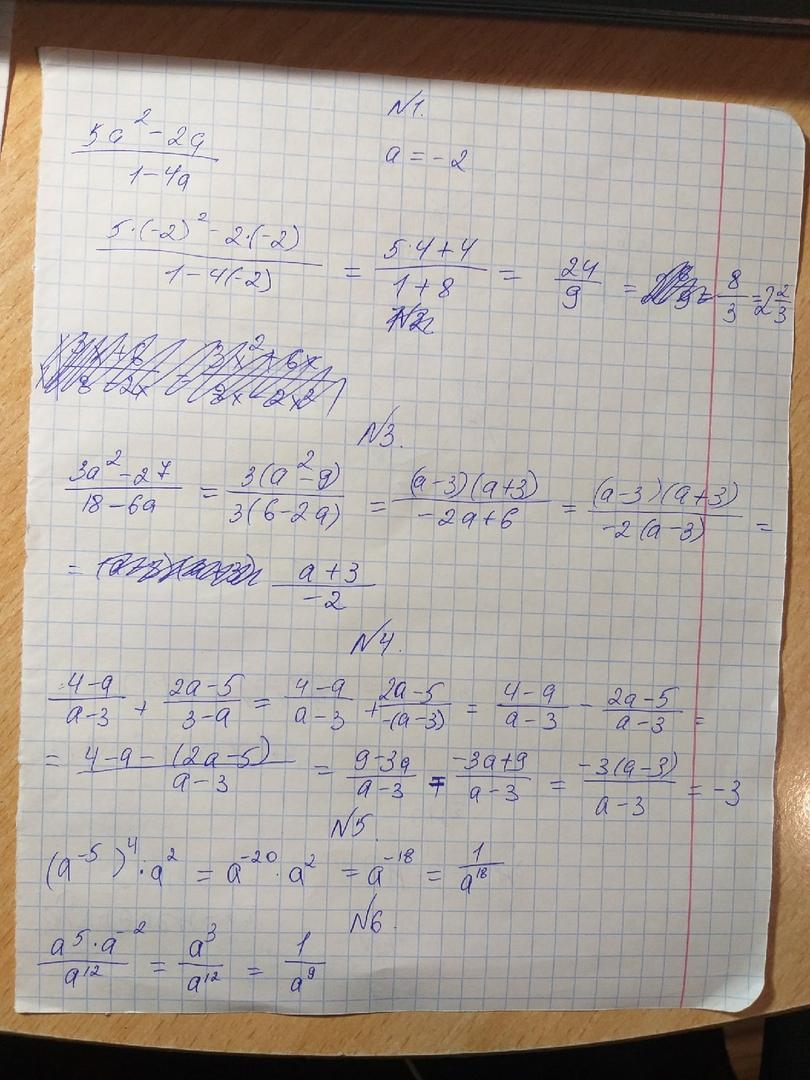 N1.
5a² - 2a / 1 - 4a    a = -2
5·(-2)² - 2·(-2) / 1 - 4(-2) = 5·4+4 / 1+8 = 24/9 = 8/3 = 2 2/3
N3.
3a² - 27 / 18 - 6a = 3(a² - 9) / 3(6 - 2a) = (a-3)(a+3) / -2a+6 = (a-3)(a+3) / -2(a-3) =
= a+3 / -2
N4.
4-a / a-3 + 2a-5 / 3-a = 4-a / a-3 + 2a-5 / -(a-3) = 4-a / a-3 - 2a-5 / a-3 =
= 4-a-(2a-5) / a-3 = 9-3a / a-3 = -3a+9 / a-3 = -3(a-3) / a-3 = -3
N5.
(a⁻⁵)⁴ · a² = a⁻²⁰ · a² = a⁻¹⁸ = 1 / a¹⁸
N6.
a⁵ · a⁻² / a¹² = a³ / a¹² = 1 / a⁹